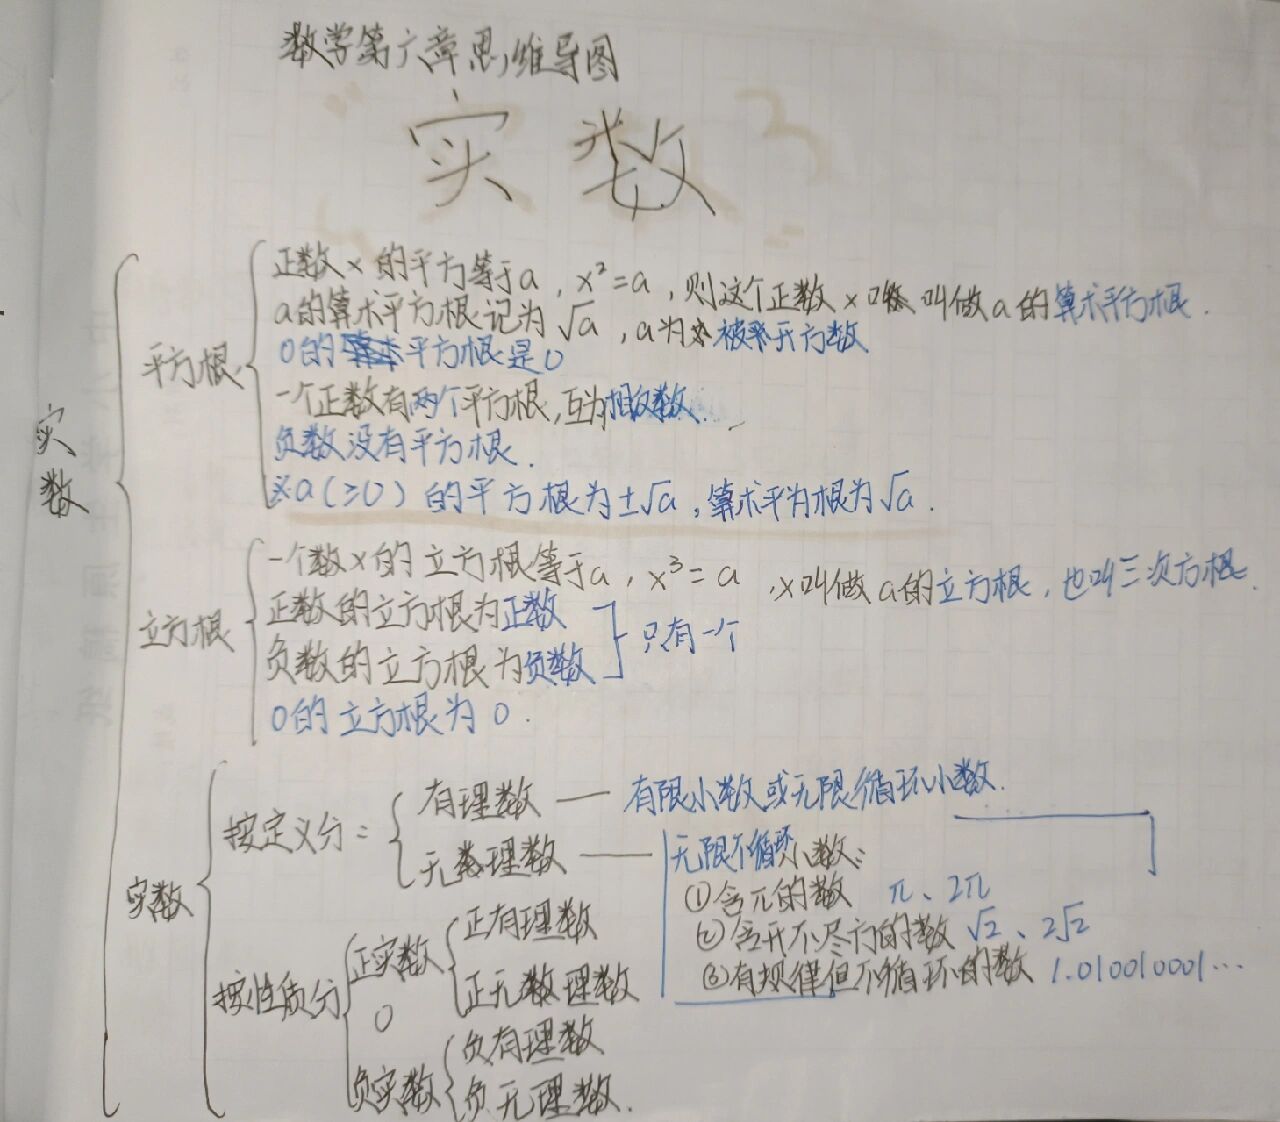 数学第六章思维导图
实数
实数
平方根
正数x的平方等于a，x²=a，则这个正数x叫做a的算术平方根.
a的算术平方根记为√a，a为被开方数
0的平方根是0
一个正数有两个平方根，互为相反数.
负数没有平方根.
※a(≥0)的平方根为±√a，算术平方根为√a.
立方根
一个数x的立方根等于a，x³=a，x叫做a的立方根，也叫三次方根.
正数的立方根为正数
负数的立方根为负数
只有一个
0的立方根为0.
实数
按定义分:
有理数 — 有限小数或无限循环小数.
无理数 — 无限不循环小数:
①含π的数 π、2π
②含开不尽方的数 √2、2√2
③有规律但不循环的数 1.010010001…
按性质分
正实数
正有理数
正无理数
0
负实数
负有理数
负无理数.